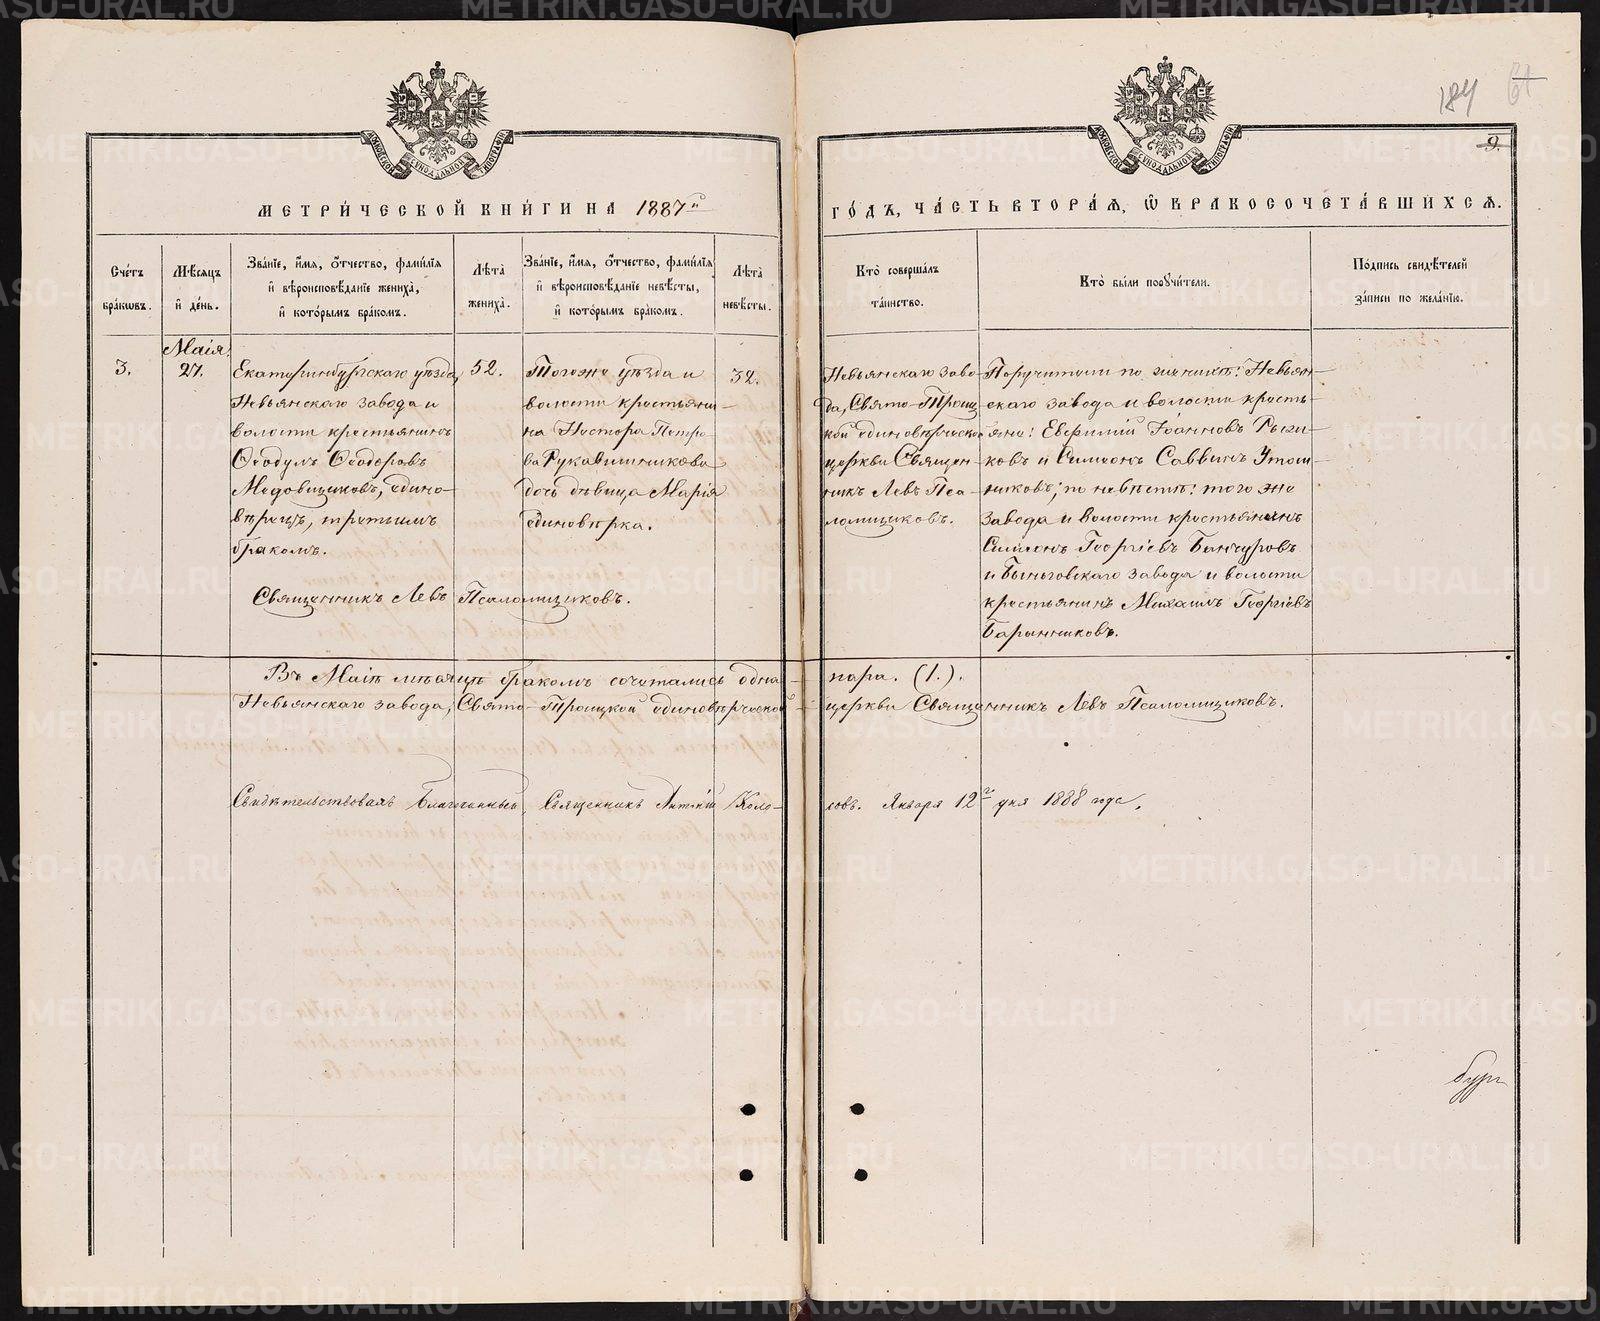 184
9.
МЕТРИЧЕСКОЙ КНИГИ НА 1887й
ГОДЪ, ЧАСТЬ ВТОРАЯ, Ѡ БРАКОСОЧЕТАВШИХСЯ.
Счетъ браковъ.
Мѣсяцъ и день.
Званіе, имя, отчество, фамилія и вѣроисповѣданіе жениха, и которымъ бракомъ.
Лѣта жениха.
Званіе, имя, отчество, фамилія и вѣроисповѣданіе невѣсты, и которымъ бракомъ.
Лѣта невѣсты.
Кто совершалъ таинство.
Кто были поручители.
Подпись свидѣтелей записи по желанію.
3.
Маія
27.
Екатеринбургскаго уѣзда,
Невьянскаго завода и
волости крестьянинъ
Ѳеодулъ Ѳеодоровъ
Медовщиковъ, едино-
вѣрецъ, третьимъ
бракомъ.
52.
Тогоже уѣзда и
волости крестьяни-
на Нестора Петро-
ва Рукавишникова
дочь дѣвица Марія
единовѣрка.
32.
Невьянскаго заво-
да, Свято-Троиц-
кой единовѣрческой
церкви Священ-
никъ Левъ Пса-
ломщиковъ.
Поручители по женихѣ: Невьян-
скаго завода и волости кресть-
яне: Евфимій Іоанновъ
и Симеонъ Саввинъ
по невѣстѣ: того же
завода и волости крестьянинъ
Симеонъ Георгіевъ
и Быньговскаго завода и волости
крестьянинъ Михаилъ Георгіевъ
Барынниковъ.
Священникъ Левъ Псаломщиковъ.
Въ Маіѣ мѣсяцѣ бракомъ сочетались одна пара. (1.).
Невьянскаго завода, Свято-Троицкой единовѣрческой церкви Священникъ Левъ Псаломщиковъ.
Свидѣтельствовалъ Благочинный, Священникъ Коло-
совъ. Января 12го дня 1888 года.
METRIKI.GASO-URAL.RU